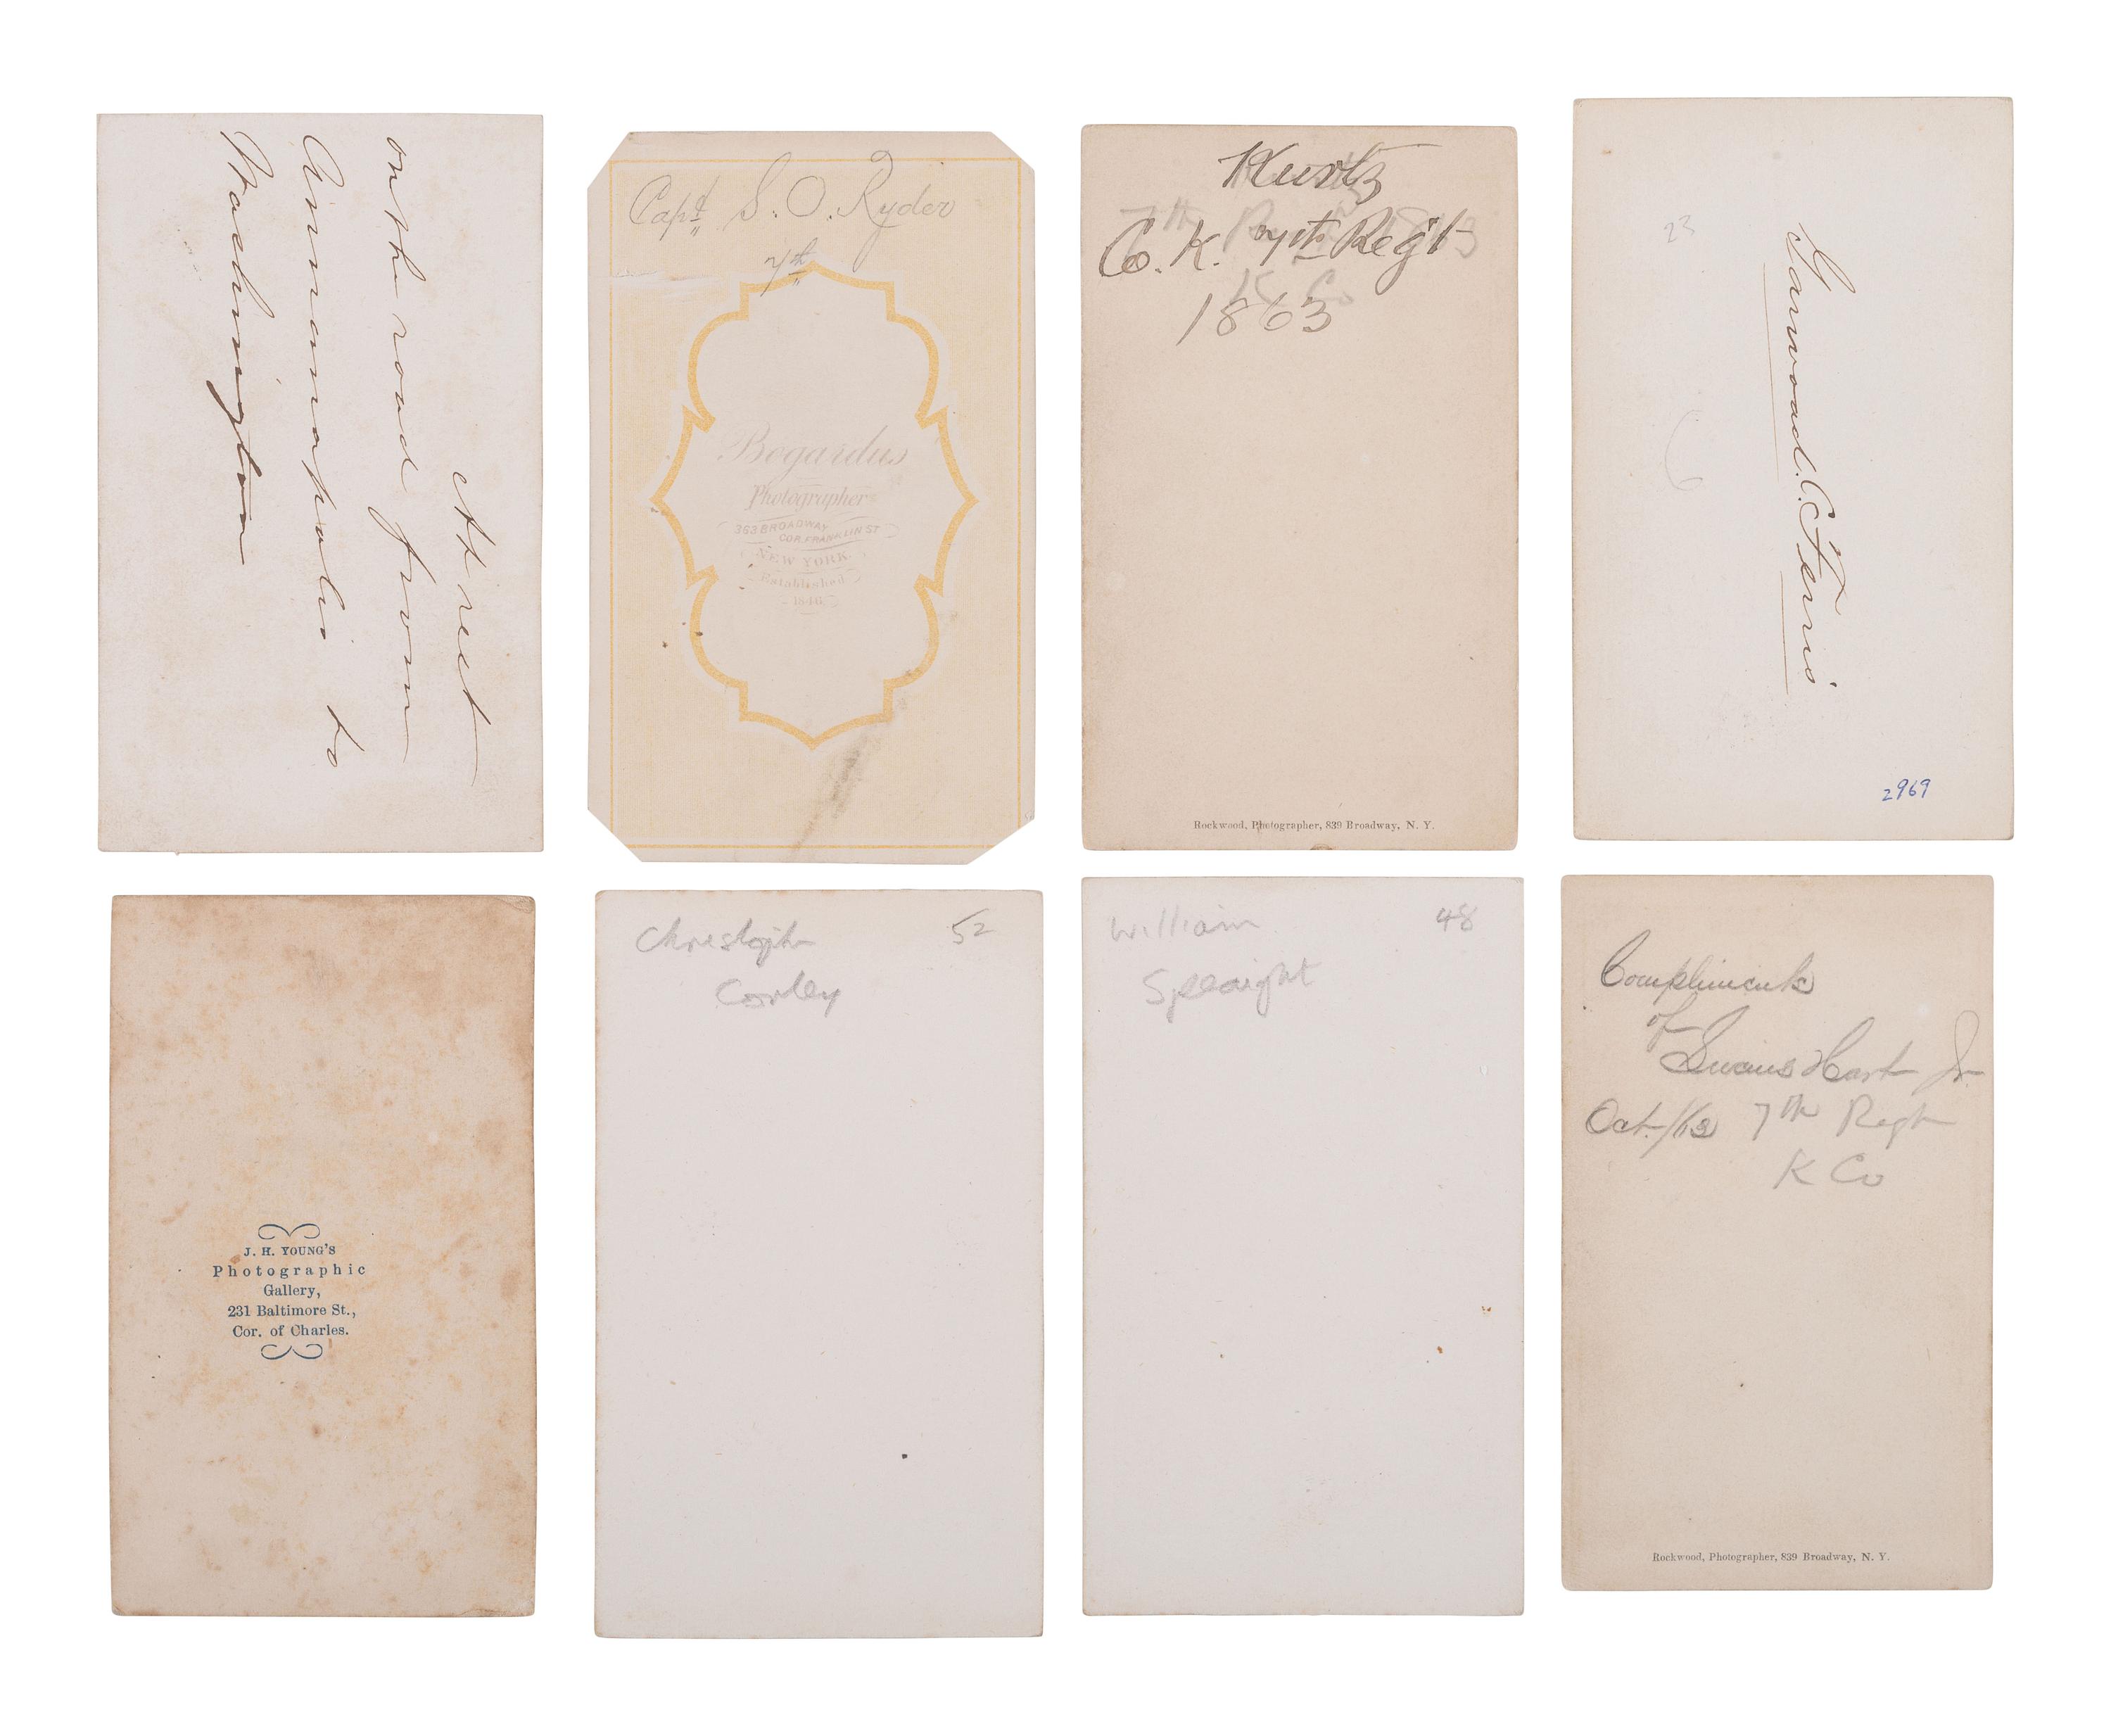 At rest
on the road from
Annanapolis to
Washington
Capt S. O. Ryder
7th
Bogardus
Photographer
363 BROADWAY
COR. FRANKLIN ST
NEW YORK.
Established
1846
Kurtz
Co. K. 7th Regt
1863
Rockwood, Photographer, 839 Broadway, N. Y.
23
Garwood. C. Ferris
2969
J. H. YOUNG'S
Photographic
Gallery,
231 Baltimore St.,
Cor. of Charles.
52
Corley
William 48
Speaight
Compliments
of
Hart Jr.
Oct. 7th Regt
K Co
Rockwood, Photographer, 839 Broadway, N. Y.